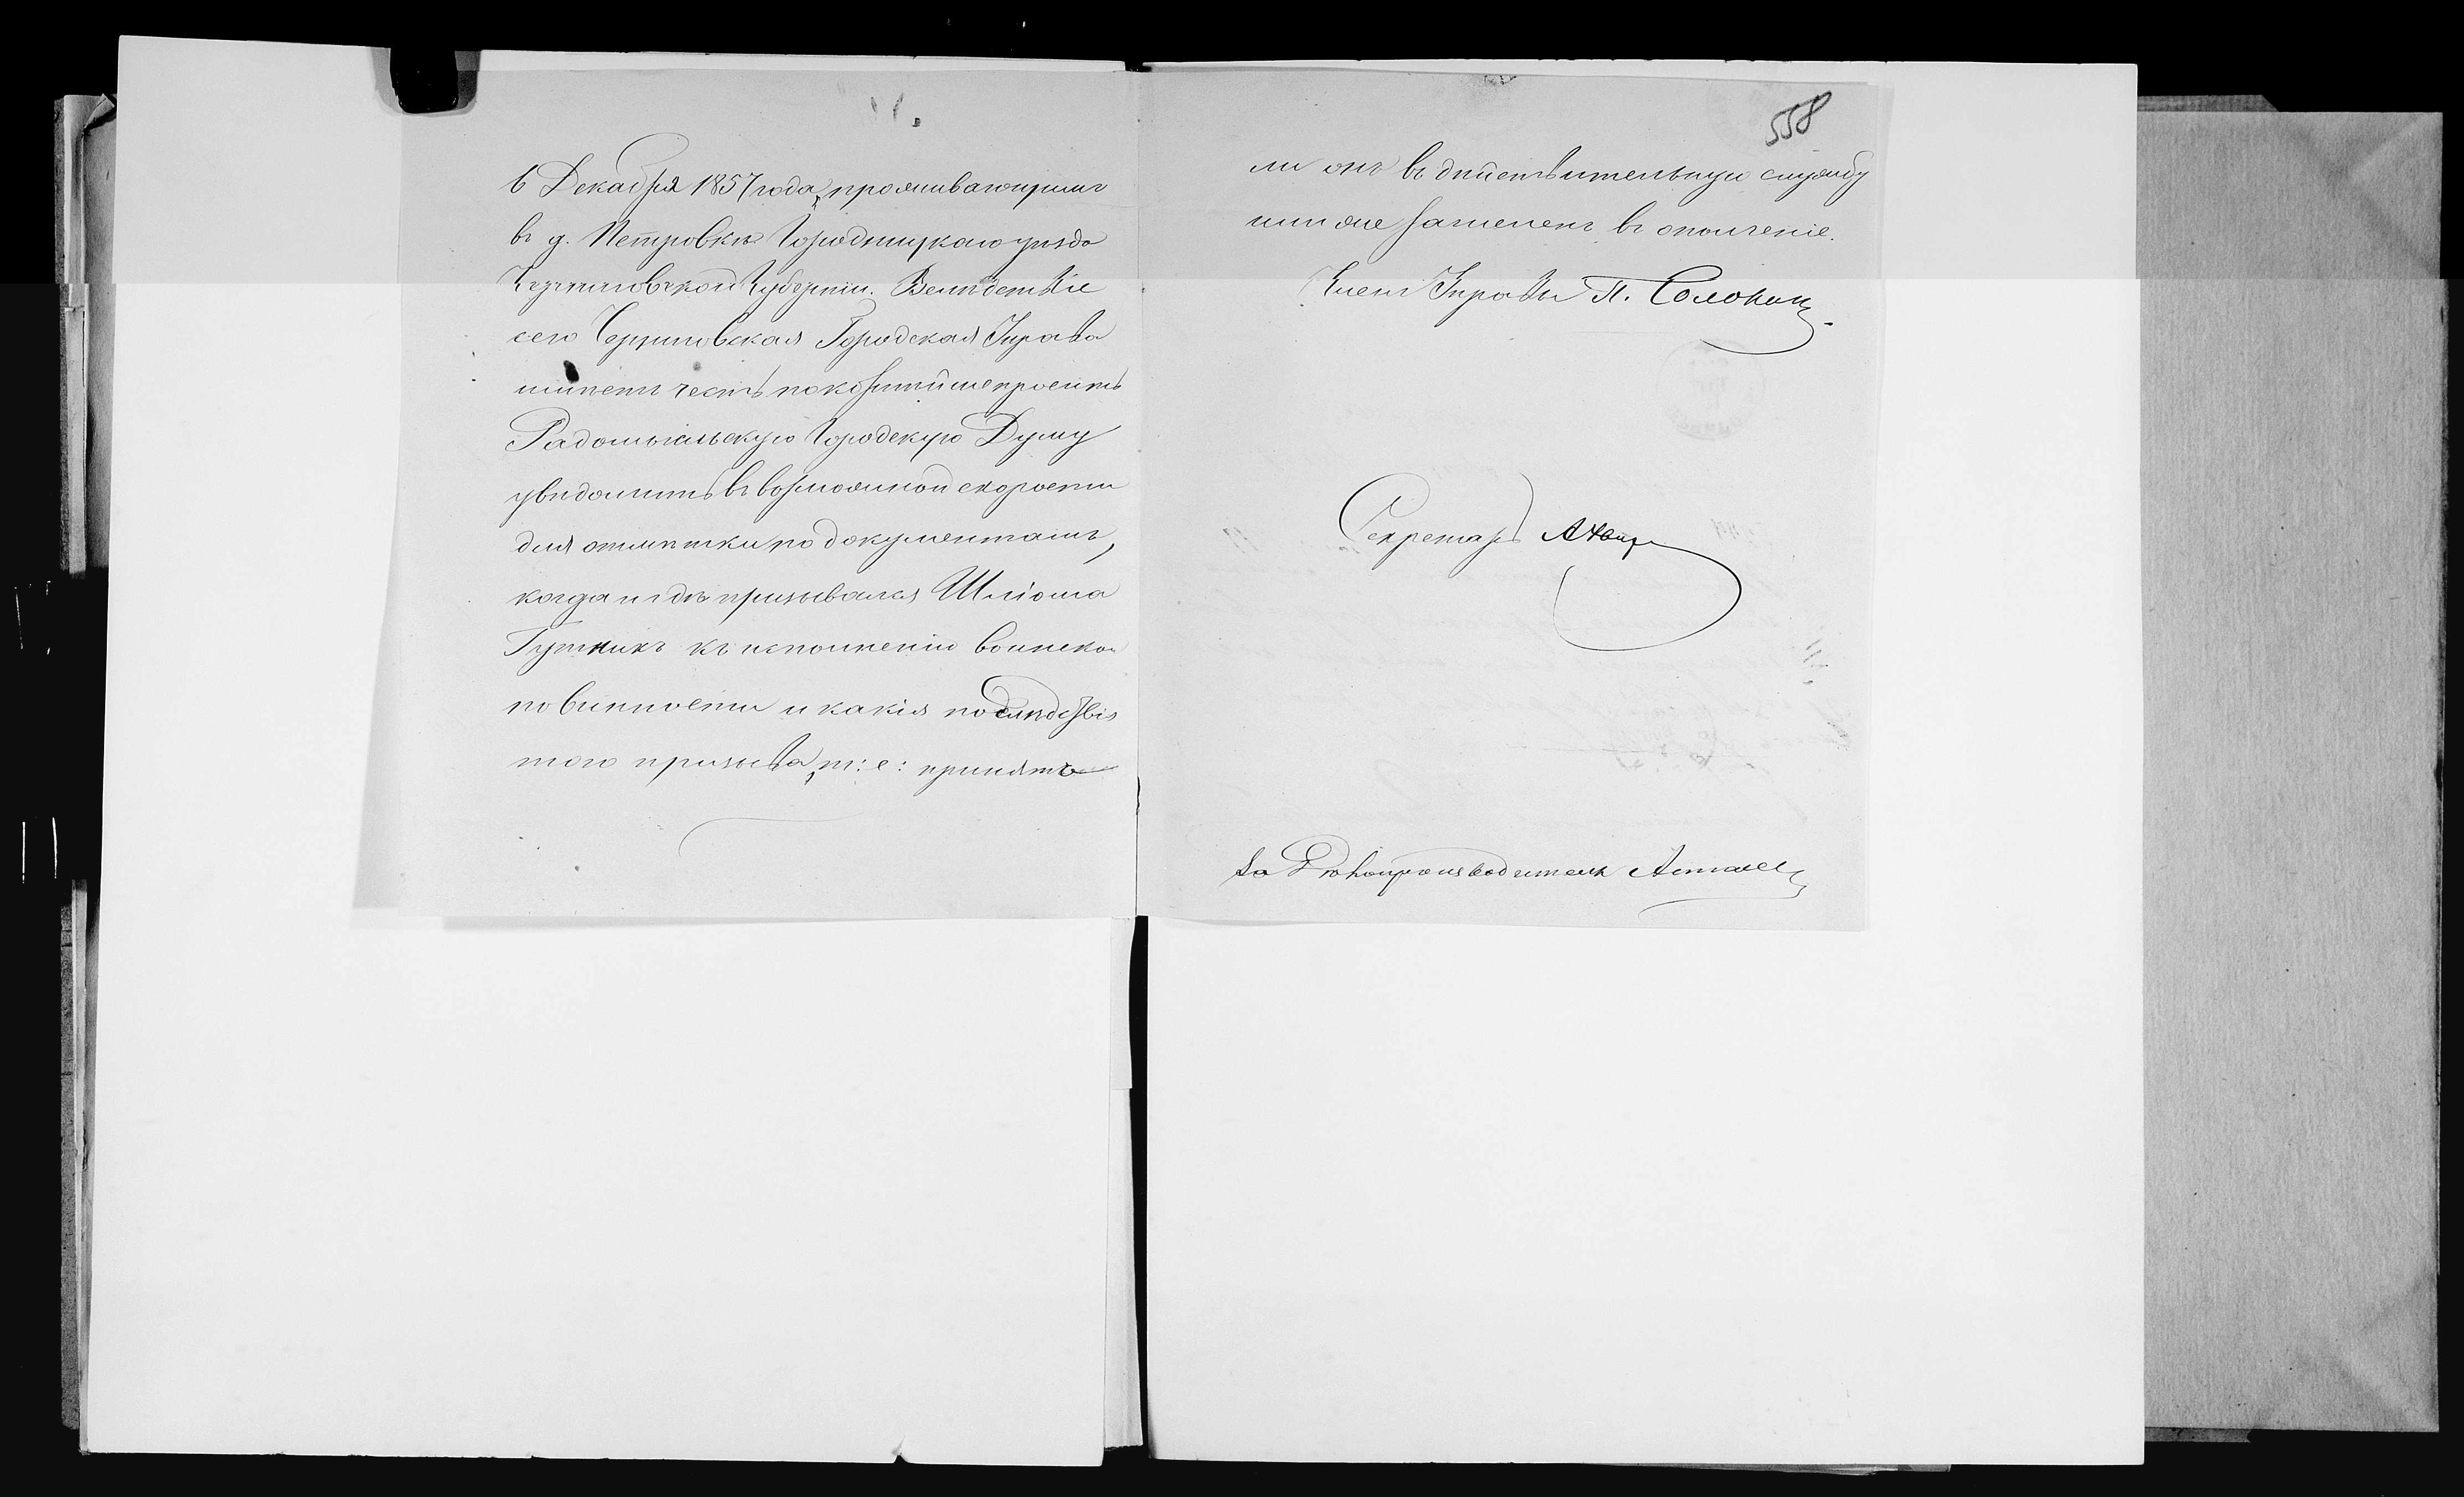 6 Декабря 1857 года, проживающимъ
въ д. Петровкѣ Городницкаго уѣзда
Черниговской Губерніи. Вслѣдствіе
сего Черниговская Городская Управа
имѣетъ честь покорнѣйше просить
Радомысльскую Городскую Думу
увѣдомить въ возможной скорости
для отмѣтки по документамъ,
когда и гдѣ призывался Шліома
Гутникъ къ исполненію воинской
повинности и какія послѣдствія
того призыва, т: е: принятъ
558
ли онъ въ дѣйствительную службу
или же зачисленъ въ ополченіе.
Членъ Управы П.
Секретарь
За Дѣлопроизводителя